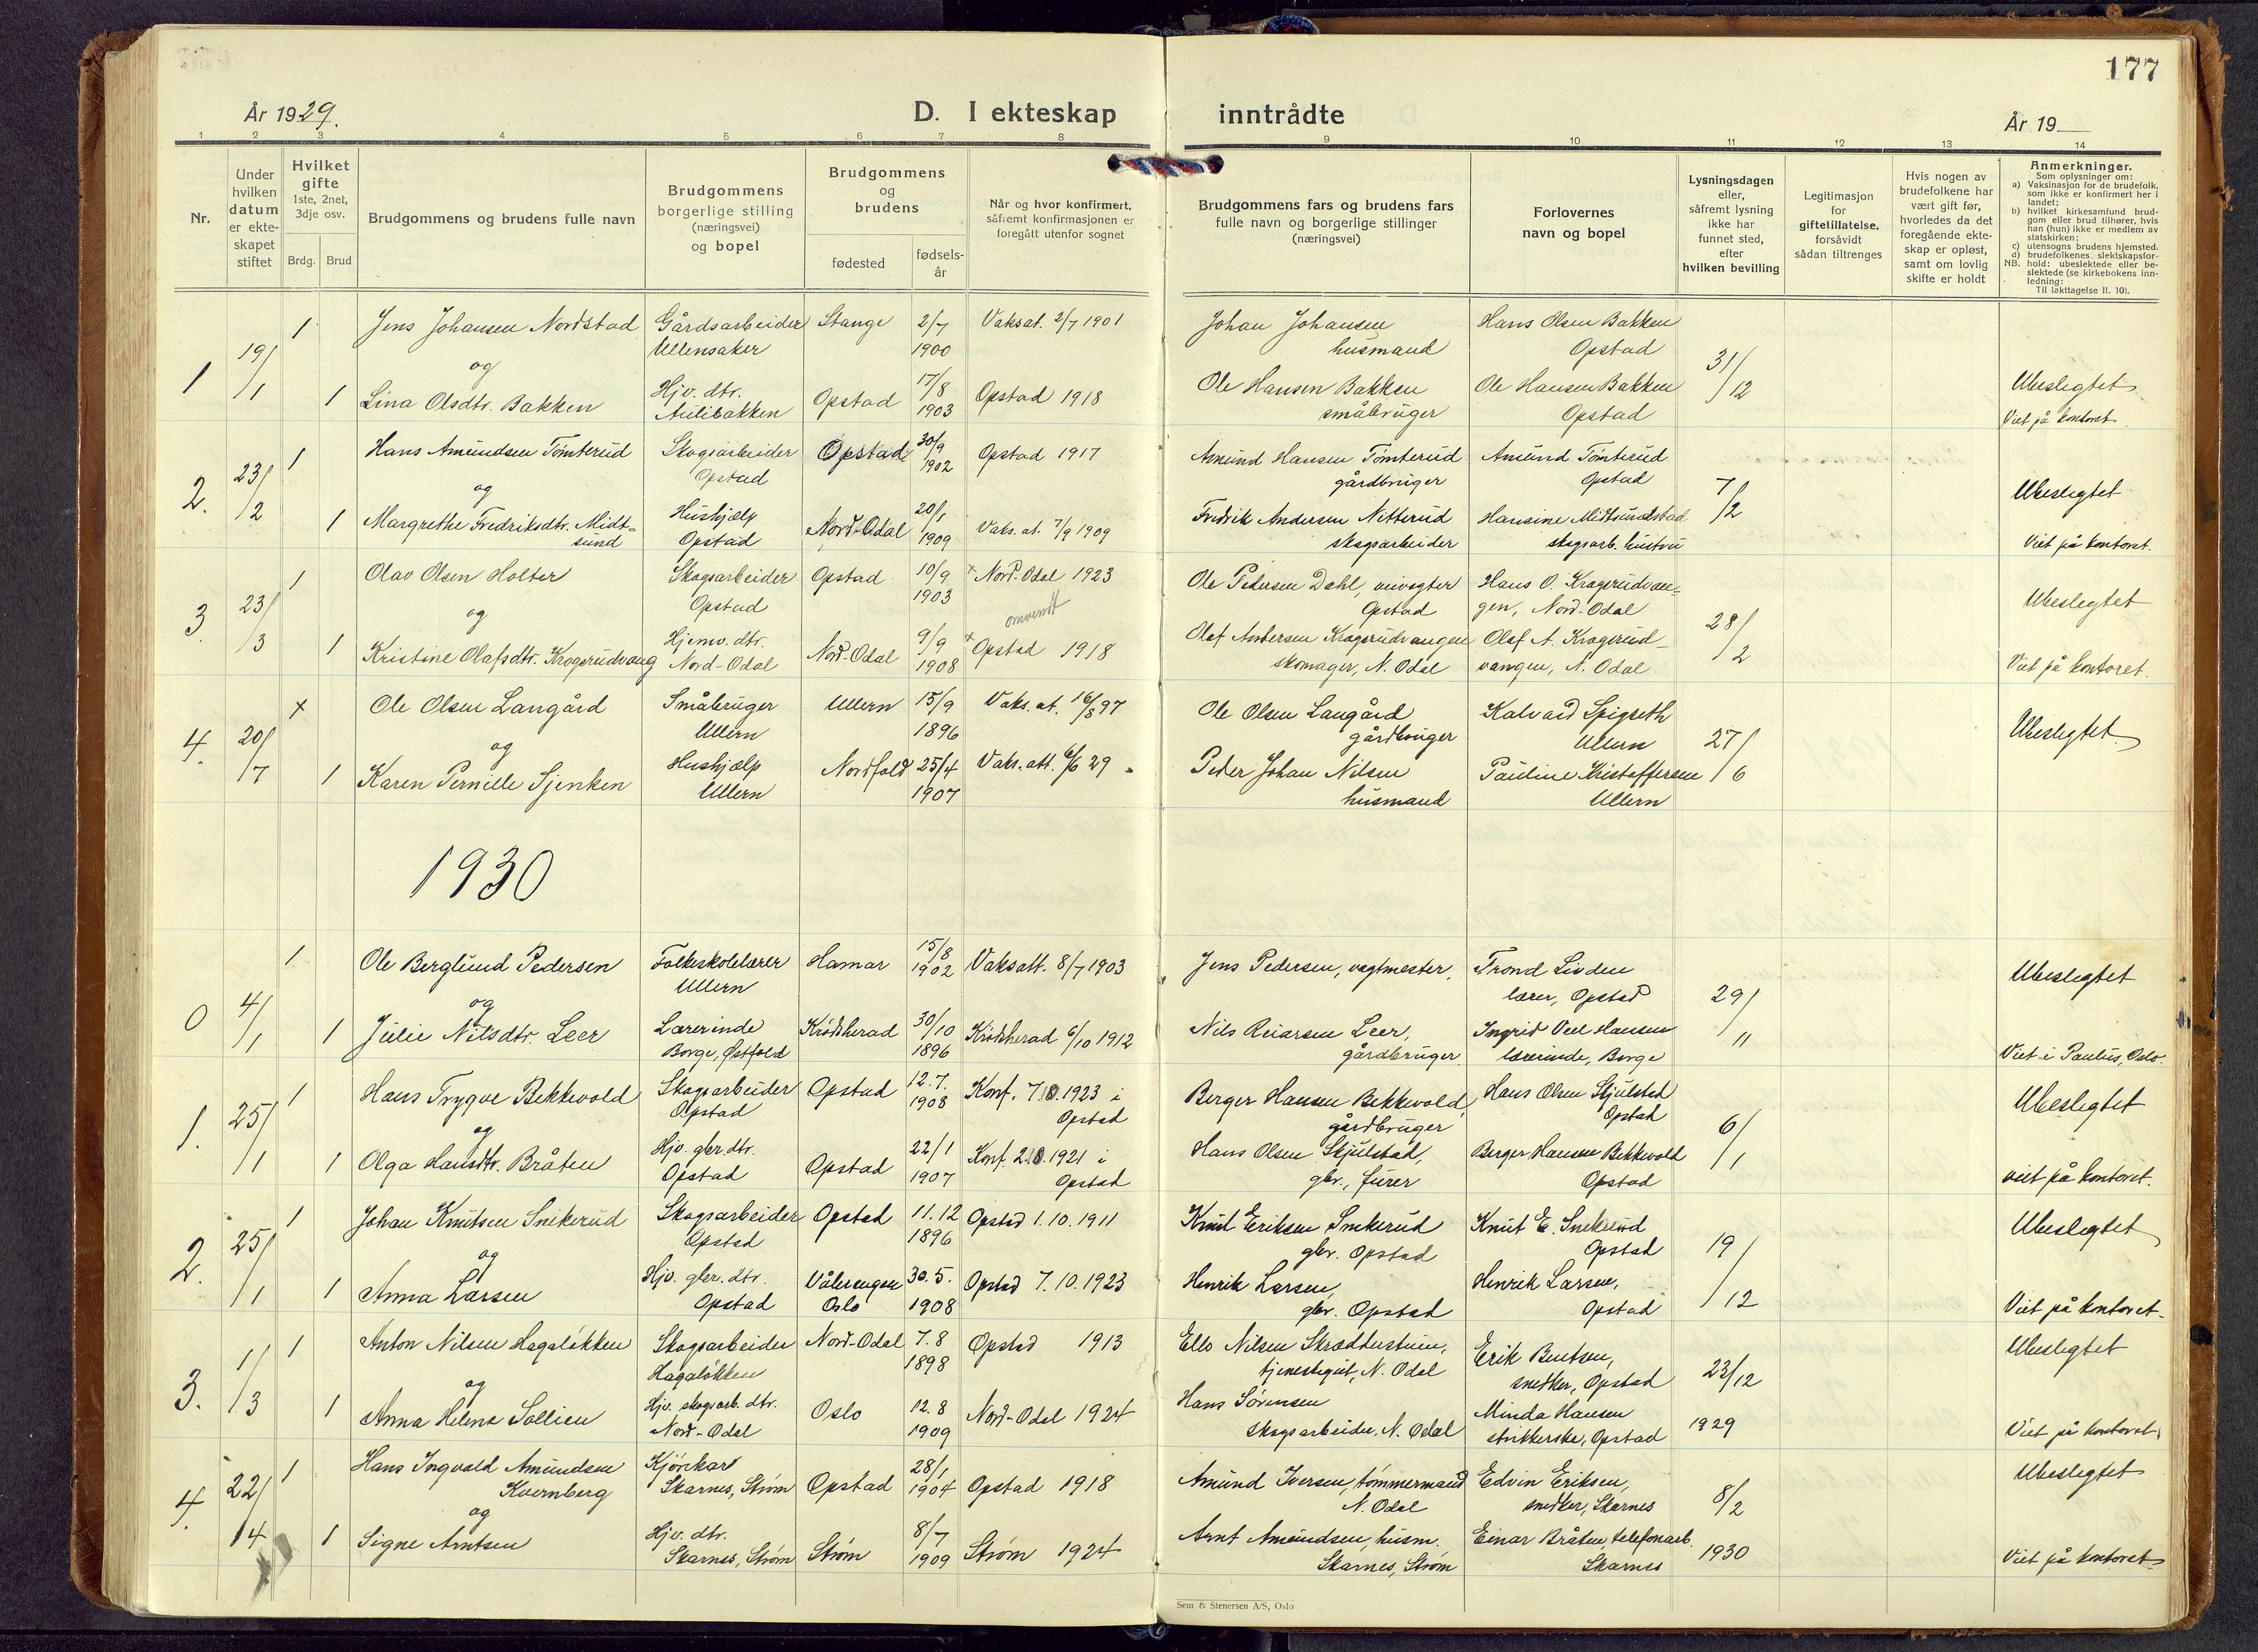 177
År 1929.
D. I ekteskap inntrådte
År 19
1 2 3 4 5 6 7 8 9 10 11 12 13 14
Nr.
Under hvilken datum er ekteskapet stiftet
Hvilket gifte 1ste, 2net, 3dje osv.
Brdg. Brud
Brudgommens og brudens fulle navn
Brudgommens borgerlige stilling (næringsvei) og bopel
Brudgommens og brudens
fødested
fødselsår
Når og hvor konfirmert, såfremt konfirmasjonen er foregått utenfor sognet
Brudgommens fars og brudens fars fulle navn og borgerlige stillinger (næringsvei)
Forlovernes navn og bopel
Lysningsdagen eller, såfremt lysning ikke har funnet sted, efter hvilken bevilling
Legitimasjon for giftetillatelse, forsåvidt sådan tiltrenges
Hvis nogen av brudefolkene har vært gift før, hvorledes da det foregående ekteskap er opløst, samt om lovlig skifte er holdt
Anmerkninger.
Som oplysninger om:
a) Vaksinasjon for de brudefolk, som ikke er konfirmert her i landet;
b) hvilket kirkesamfund brudgom eller brud tilhører, hvis han (hun) ikke er medlem av statskirken;
c) utensogns brudens hjemsted.
d) brudefolkenes slektskapsforhold: ubeslektede eller beslektede (se kirkebokens innledning:
NB.
Til iakttagelse II. 10).
1 19/1 1 Jens Johansen Nordstad Gårdsarbeider Ullensaker Stange 2/7 1900 Vaksat. 2/7 1901 Johan Johansen husmand Hans Olsen Bakken Opstad 31/12
og
1 Lina Olsdtr. Bakken Hjv. dtr. Aulibakken Opstad 17/8 1903 Opstad 1918 Ole Hansen Bakken småbruger Ole Hansen Bakken Opstad Ubeslegtet Viet på kontoret.
2. 23/2 1 Hans Amundsen Tomterud Skogsarbeider Opstad Opstad 30/9 1902 Opstad 1917 Amund Hansen Tomterud gårdbruger Amund Tomterud Opstad 7/2 Ubeslegtet
og
1 Margrethe Fredriksdtr. Midtsund Hushjælp Opstad Nord-Odal 20/1 1909 Vaks.at. 7/9 1909 Fredrik Andersen Nitterud skogsarbeider Hansine Midtsundstad skogsarb. hustru Viet på kontoret.
3. 23/3 1 Olav Olsen Holter Skogsarbeider Opstad Opstad 10/9 1903 x Nord-Odal 1923 Ole Pedersen Dahl, veivogter Opstad Hans O. Krogsrudvangen, Nord-Odal 28/2 Ubeslegtet
og
omvendt
1 Kristine Olafsdtr. Krogsrudvang Hjemv. dtr. Nord-Odal Nord-Odal 9/9 1908 x Opstad 1918 Olaf Andersen Krogsrudvangen skomager, N. Odal Olaf A. Krogsrudvangen, N. Odal Viet på kontoret.
4. 20/7 x Ole Olsen Langård Småbruger Ullern Ullern 15/9 1896 Vaks.at. 16/8 97 Ole Olsen Langård gårdbruger Kalvard Spigseth Ullern 27/6 Ubeslegtet
og
1 Karen Pernille Sjenken Hushjælp Ullern Nordfold 25/4 1907 Vaks.att. 6/6 29 Peder Johan Nilsen husmand Pauline Kristoffersen Ullern
1930
0 4/1 1 Ole Berglund Pedersen Folkeskolelærer Ullern Hamar 15/8 1902 Vaksatt. 8/7 1903 Jens Pedersen, vagtmester. Trond Linden lærer, Opstad 29/11 Ubeslegtet
og
1 Julie Nilsdtr. Leer Lærerinde Borge, Østfold Krødsherad 30/10 1896 Krødsherad 6/10 1912 Nils Reiarsen Leer, gårdbruger. Ingrid Veel Hansen lærerinde, Borge Viet i Paulus, Oslo.
1. 25/1 1 Hans Trygve Bekkevold Skogsarbeider Opstad Opstad 12.7. 1908 Konf. 7.10.1923 i Opstad Berger Hansen Bekkevold, gårdbruger Hans Olsen Skjulstad Opstad 6/1 Ubeslegtet
og
1 Olga Hansdtr. Bråten Hjv. gbr. dtr. Opstad Opstad 22/1 1907 Konf. 2.10.1921 i Opstad Hans Olsen Skjulstad, gbr., furer Berger Hansen Bekkevold Opstad viet på kontoret.
2. 25/1 1 Johan Knutsen Snikerud Skogsarbeider Opstad Opstad 11.12 1896 Opstad 1.10.1911 Knut Eriksen Snekerud gbr. Opstad Knut E. Snekerud Opstad 19/12 Ubeslegtet
og
1 Anna Larsen Hjv. gbr. dtr. Opstad Vålerengen Oslo 30.5. 1908 Opstad 7.10.1923 Henrik Larsen, gbr. Opstad Henrik Larsen, Opstad Viet på kontoret.
3. 1/3 1 Anton Nilsen Hagaløkken Skogsarbeider Hagaløkken Nord-Odal 7.8 1898 Opstad 1913 Nilsen tjenestegut, N. Odal Erik Bentsen, snedker, Opstad 23/12 1929 Ubeslegtet
og
1 Anna Helene Sollien Hjv. skogsarb. dtr. Nord-Odal Oslo 12.8 1909 Nord-Odal 1924 Hans Sørensen Skogsarbeider, N. Odal Minda Hansen strikkerske, Opstad Viet på kontoret.
4. 22/4 1 Hans Ingvald Amundsen Kvernberg Kjørekar Skarnes, Strøm Opstad 28/1 1904 Opstad 1918 Amund Iversen, tømmermand N. Odal Edvin Eriksen, snedker, Skarnes 8/2 1930 Ubeslegtet
og
1 Signe Arntsen Hjv. dtr. Skarnes, Strøm Strøm 8/7 1909 Strøm 1924 Arnt Amundsen, husm. Skarnes, Strøm Einar Bråten, telefonarb. Skarnes Viet på kontoret.
Sem & Stenersen A/S, Oslo